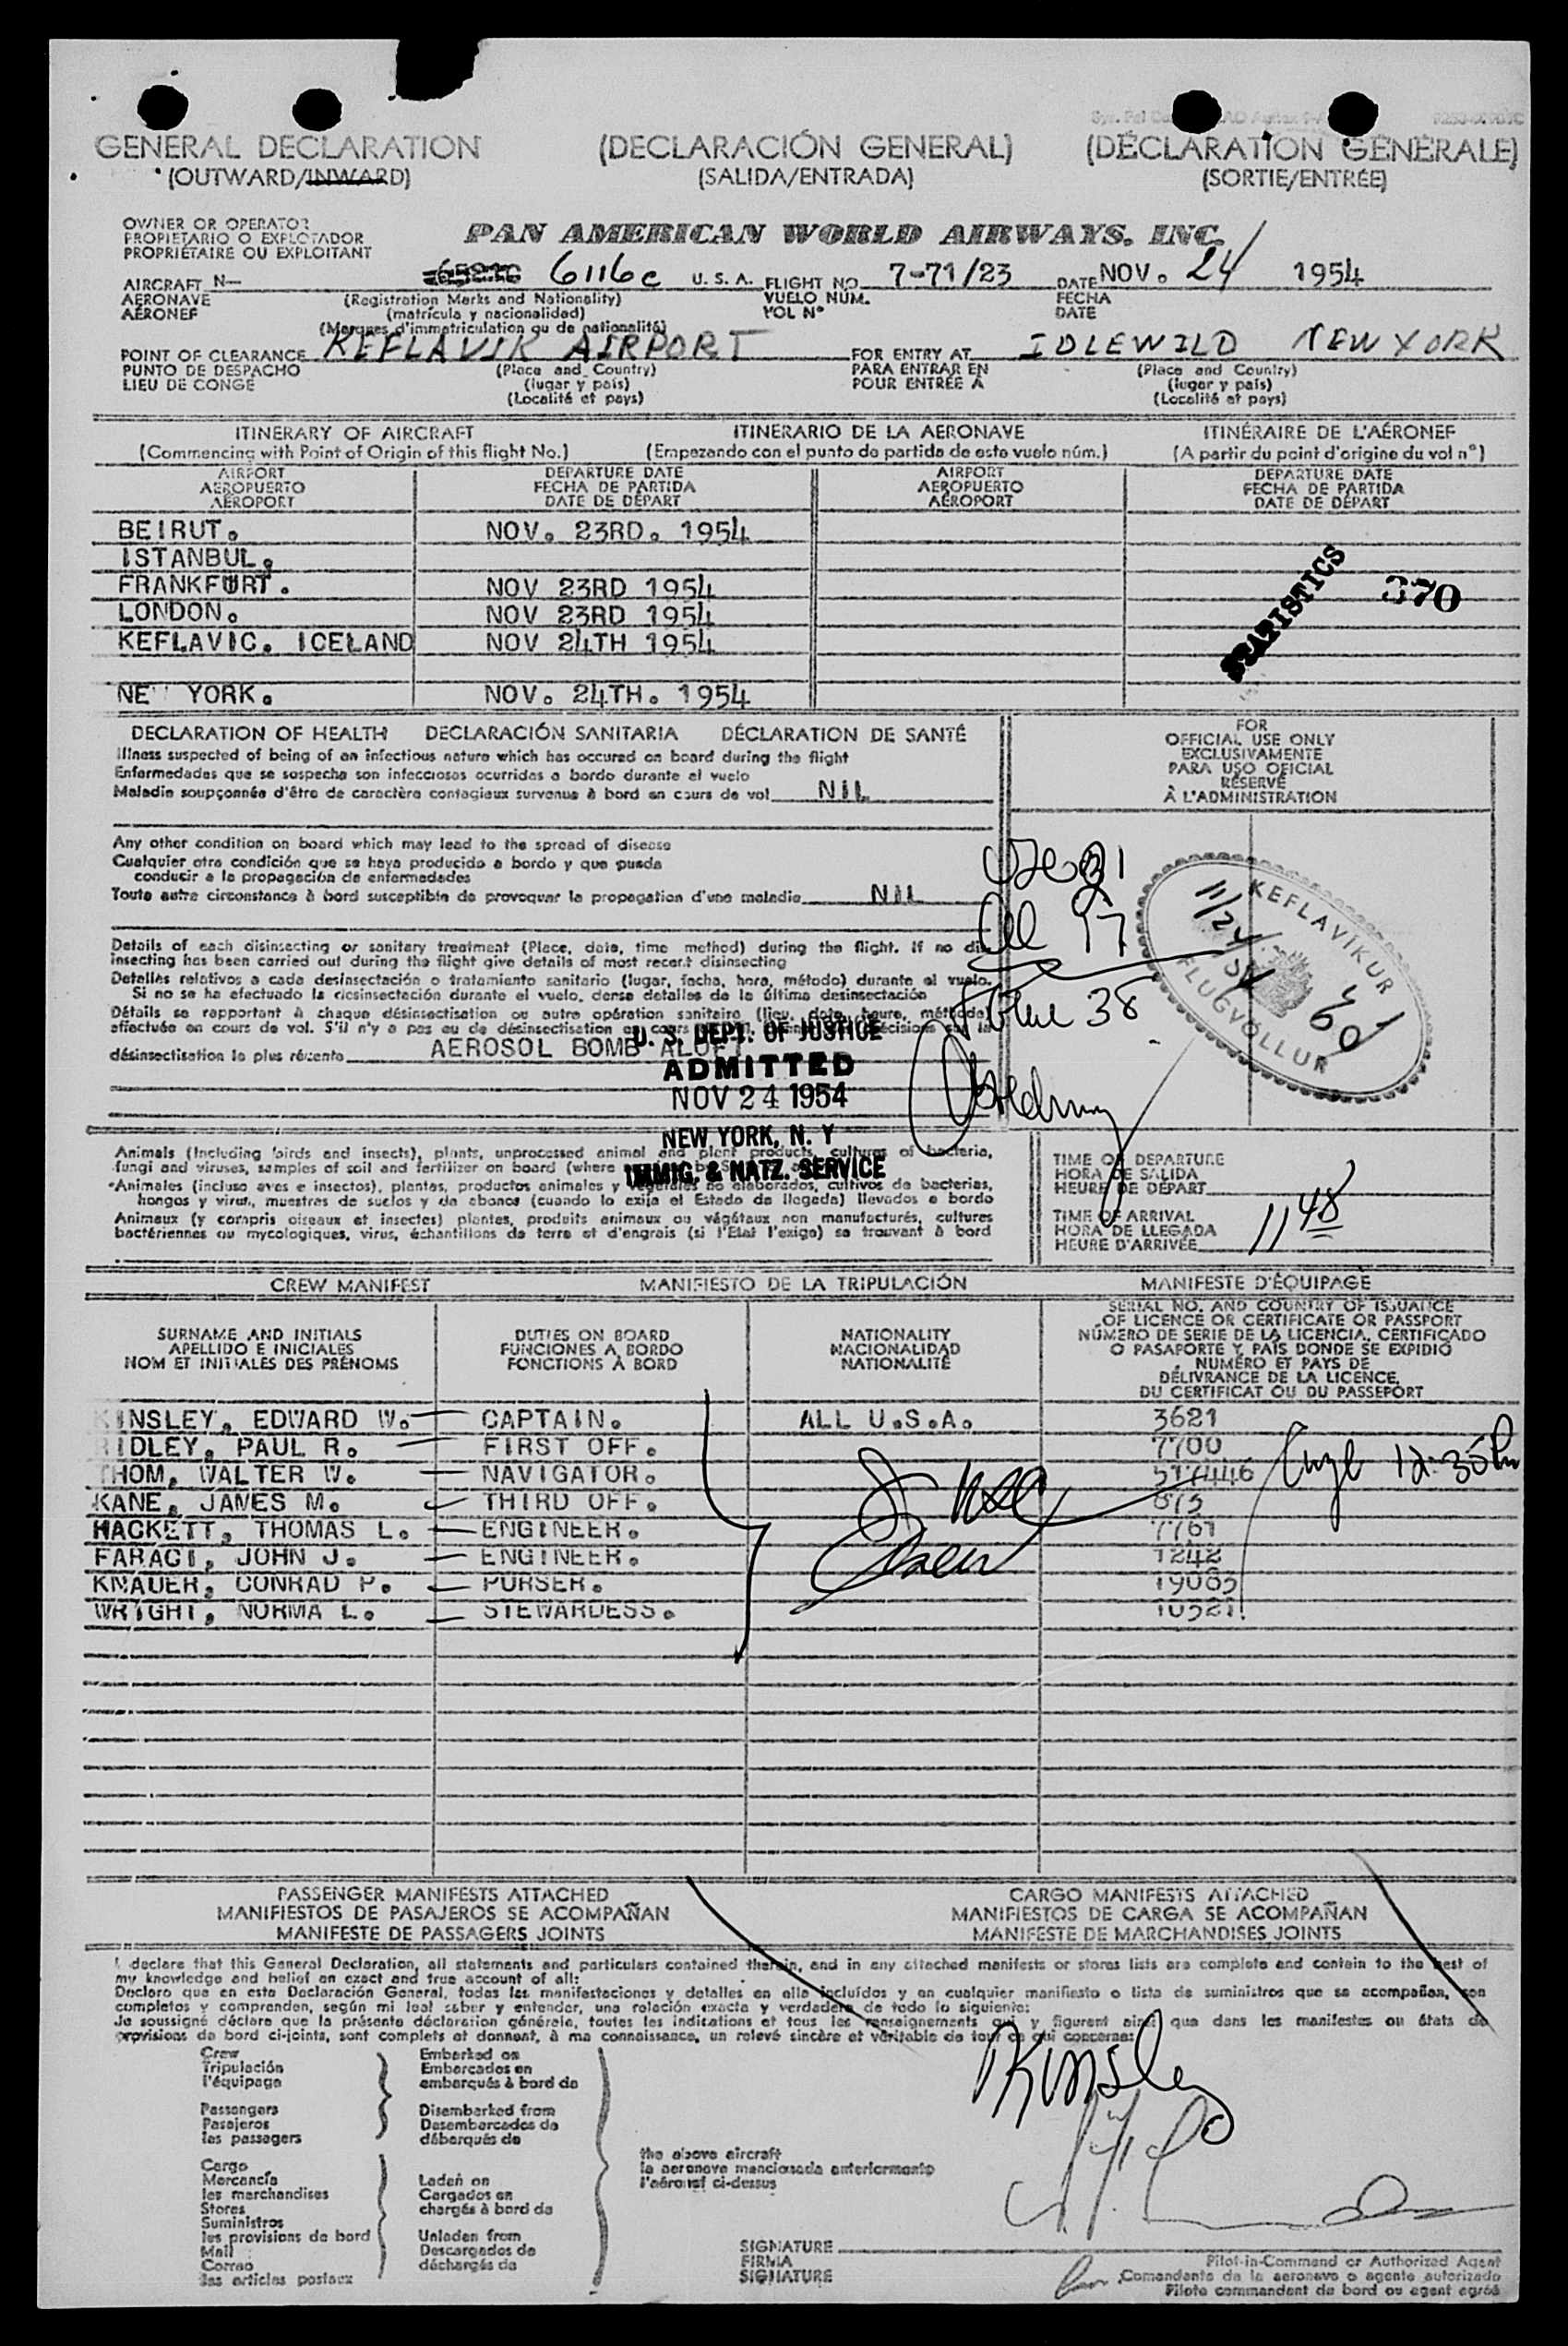 GENERAL DECLARATION (DECLARACIÓN GENERAL) (DÉCLARATION GÉNÉRALE)
(OUTWARD/INWARD) (SALIDA/ENTRADA) (SORTIE/ENTRÉE)
OWNER OR OPERATOR
PROPIETARIO O EXPLOTADOR
PROPRIÉTAIRE OU EXPLOITANT
PAN AMERICAN WORLD AIRWAYS, INC.
AIRCRAFT N— 6116c U. S. A. FLIGHT NO. 7-71/23 DATE NOV. 24 1954
AERONAVE (Registration Marks and Nationality) VUELO NÚM. FECHA
AÉRONEF (matrícula y nacionalidad) VOL N° DATE
(Marques d'immatriculation ou de nationalité)
POINT OF CLEARANCE KEFLAVIK AIRPORT FOR ENTRY AT IDLEWILD NEW YORK
PUNTO DE DESPACHO (Place and Country) PARA ENTRAR EN (Place and Country)
LIEU DE CONGÉ (lugar y país) POUR ENTRÉE À (lugar y país)
(Localité et pays) (Localité et pays)
ITINERARY OF AIRCRAFT ITINERARIO DE LA AERONAVE ITINÉRAIRE DE L'AÉRONEF
(Commencing with Point of Origin of this flight No.) (Empezando con el punto de partida de este vuelo núm.) (A partir du point d'origine du vol n°)
AIRPORT DEPARTURE DATE AIRPORT DEPARTURE DATE
AEROPUERTO FECHA DE PARTIDA AEROPUERTO FECHA DE PARTIDA
AÉROPORT DATE DE DÉPART AÉROPORT DATE DE DÉPART
BEIRUT. NOV. 23RD. 1954
ISTANBUL.
FRANKFURT. NOV 23RD 1954
LONDON. NOV 23RD 1954
KEFLAVIC. ICELAND NOV 24TH 1954
STATISTICS 370
NE YORK. NOV. 24TH. 1954
DECLARATION OF HEALTH DECLARACIÓN SANITARIA DÉCLARATION DE SANTÉ
Illness suspected of being of an infectious nature which has occured on board during the flight
Enfermedades que se sospecha son infecciosas ocurridas a bordo durante el vuelo
Maladie soupçonnée d'être de caractère contagieux survenue à bord en cours de vol NIL
FOR
OFFICIAL USE ONLY
EXCLUSIVAMENTE
PARA USO OFICIAL
RÉSERVÉ
À L'ADMINISTRATION
Any other condition on board which may lead to the spread of disease
Cualquier otra condición que se haya producido a bordo y que pueda
conducir a la propagación de enfermedades
Toute autre circonstance à bord susceptible de provoquer la propagation d'une maladie NIL
KEFLAVIKUR
FLUGVÖLLUR
11/24/54
38
Details of each disinsecting or sanitary treatment (Place, date, time method) during the flight. If no dis-
insecting has been carried out during the flight give details of most recent disinsecting
Detalles relativos a cada desinsectación o tratamiento sanitario (lugar, fecha, hora, método) durante el vuelo.
Si no se ha efectuado la desinsectación durante el vuelo, dense detalles de la última desinsectación
Détails se rapportant à chaque désinsectisation ou autre opération sanitaire (lieu, date, heure, méthode)
effectuée en cours de vol. S'il n'y a pas eu de désinsectisation en cours
désinsectisation la plus récente AEROSOL BOMB ALOFT
U. S. DEPT. OF JUSTICE
ADMITTED
NOV 24 1954
NEW YORK, N. Y
IMMIG. & NATZ. SERVICE
Animals (Including birds and insects), plants, unprocessed animal and plant products, cultures of bacteria,
fungi and viruses, samples of soil and fertilizer on board (where
Animales (incluso aves e insectos), plantas, productos animales y vegetales no elaborados, cultivos de bacterias,
hongos y virus, muestras de suelos y de abonos (cuando lo exija el Estado de llegada) llevados a bordo
Animaux (y compris oiseaux et insectes) plantes, produits animaux ou végétaux non manufacturés, cultures
bactériennes ou mycologiques, virus, échantillons de terre et d'engrais (si l'Etat l'exige) se trouvant à bord
TIME OF DEPARTURE
HORA DE SALIDA
HEURE DE DÉPART
TIME OF ARRIVAL
HORA DE LLEGADA
HEURE D'ARRIVÉE 11 48
CREW MANIFEST MANIFIESTO DE LA TRIPULACIÓN MANIFESTE D'ÉQUIPAGE
SURNAME AND INITIALS
APELLIDO E INICIALES
NOM ET INITIALES DES PRÉNOMS
DUTIES ON BOARD
FUNCIONES A BORDO
FONCTIONS À BORD
NATIONALITY
NACIONALIDAD
NATIONALITÉ
SERIAL NO. AND COUNTRY OF ISSUANCE
OF LICENCE OR CERTIFICATE OR PASSPORT
NÚMERO DE SERIE DE LA LICENCIA, CERTIFICADO
O PASAPORTE Y PAÍS DONDE SE EXPIDIÓ
NUMÉRO ET PAYS DE
DÉLIVRANCE DE LA LICENCE,
DU CERTIFICAT OU DU PASSEPORT
KINSLEY, EDWARD W. CAPTAIN. ALL U.S.A. 3621
RIDLEY, PAUL R. FIRST OFF. 7700
THOM, WALTER W. NAVIGATOR. 517446 12:35 Pm
KANE, JAMES M. THIRD OFF. 875
HACKETT, THOMAS L. ENGINEER. 7761
FARACI, JOHN J. ENGINEER. 1242
KNAUER, CONRAD P. PURSER. 19085
WRIGHT, NORMA L. STEWARDESS. 10521
PASSENGER MANIFESTS ATTACHED CARGO MANIFESTS ATTACHED
MANIFIESTOS DE PASAJEROS SE ACOMPAÑAN MANIFIESTOS DE CARGA SE ACOMPAÑAN
MANIFESTE DE PASSAGERS JOINTS MANIFESTE DE MARCHANDISES JOINTS
I declare that this General Declaration, all statements and particulars contained therein, and in any attached manifests or stores lists are complete and contain to the best of
my knowledge and belief an exact and true account of all:
Declaro que en esta Declaración General, todas las manifestaciones y detalles en ella incluídos y en cualquier manifiesto o lista de suministros que se acompañan, son
completos y comprenden, según mi leal saber y entender, una relación exacta y verdadera de todo lo siguiente:
Je soussigné déclare que la présente déclaration générale, toutes les indications et tous les renseignements qui y figurent ainsi que dans les manifestes ou états de
provisions de bord ci-joints, sont complets et donnent, à ma connaissance, un relevé sincère et véritable de tout ce qui concerne:
Crew Embarked on
Tripulación Embarcados en
l'équipage embarqués à bord de
Passengers Disembarked from
Pasajeros Desembarcados de
les passagers débarqués de
Kinsley
the above aircraft
la aeronave mencionada anteriormente
l'aéronef ci-dessus
Cargo
Mercancía Laden on
les marchandises Cargados en
Stores chargés à bord de
Suministros
les provisions de bord Unladen from
Mail Descargados de
Correo déchargés de
les articles postaux
SIGNATURE
FIRMA
SIGNATURE
Pilot-in-Command or Authorized Agent
Comandante de la aeronave o agente autorizado
Pilote commandant de bord ou agent agréé